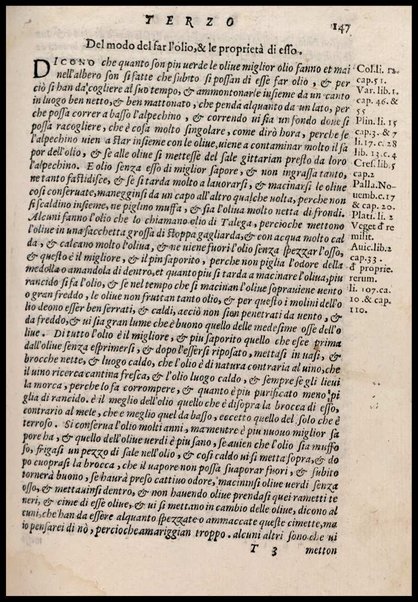 TERZO 147
Del modo del far l'olio, & le proprietà di esso.
DICONO che quanto son piu uerde le oliue miglior olio fanno et mai
nell'albero son si fatte che subito si possan di esse far olio, & per
ciò si han da cogliere al suo tempo, & ammontonarle insieme da un canto
in luogo ben netto, & ben mattonato, che penda alquanto da un lato, per
che possa correr a basso l'alpechino, & correndo ui sia un fondo doue si
possa racogliere, che è cosa molto singolare, come dirò hora, perche se
l'alpechino uien a star insieme con le oliue, uiene a contaminar molto il sa
por dell'olio, & se alle oliue si mettesse del sale gittarian presto da loro
l'alpechino. E olio senza di esse miglior sapore, & non ingrassa tanto,
ne tanto fastidisce, & se si tarda molto a lauorarsi, & macinarsi le oliue
cosi conseruate, maneggiansi da un capo all'altro qualche uolta, perche non
si scaldino insieme, ne piglino muffa, & sia l'oliua molto netta di frondi.
Alcuni fanno l'olio che lo chiamano olio di Talega, percioche mettono
l'oliue in una sacchetta grossa di stoppa gagliarda, & con acqua molto cal
da, & calcano molto l'oliua, & ne uiene fuori l'olio senza spezzar l'osso,
& questo è il migliore, & il piu saporito, perche non piglia l'odore della
mandola o amandola di dentro, et quanto piu si tarda a macinare l'oliua, piu
rancido si fa l'olio, & se nel tempo che si macinan l'oliue soprauiene uento
o gran freddo, le oliue non fruttan tanto olio, & per questo i molini dell'o
lio deono esser ben serrati, & caldi, acciò non sian penetrati da uento, &
da freddo, & ui sia gran lume che è buono quello delle medesime osse dell'o
liue. Di tutto l'olio è il migliore, & piu saporito quello che esce prima
dall'oliue senza esprimersi, & dopo l'essersi riposato, mettasi in uasi, &
brocche nette, & luogo caldo, che l'olio è di natura contraria al uino, che
il uino ricerca cantina fresca, & l'olio luogo caldo, & sempre se gli lieui
la morca, perche lo fa corrompere, & quanto è piu purificato meno pi
glia di rancido. è il meglio dell'olio quello che è di sopra la brocca di esso,
contrario al mele, che e meglio quel da basso, eccetto quello del sole che è
cerroso. Si conserua l'olio molti anni, ma mentre è piu nuouo miglior sa
pore ha, & quello dell'oliue uerdi è piu sano, se auien che l'olio sia muffo
so, frigasi un pezzo di sale nell'olio, & cosi caldo ui si metta sopra, & do
po cuoprasi la brocca, che il uapore non possa suaporar fuori, & subito
tornerà buono, se haurà preso cattiuo odore, macininsi oliue uerdi senza
osso, & mettauinsi dentro, & non hauendo oliue prendasi quei rametti te
neri, & cime di esse oliue, & ui si metteno in cambio delle oliue, dicono al
cuni, che han da essere alquanto spezzate o ammaccate queste cimette, ma
io pensarei di nò, percioche amariggian troppo. alcuni altri sono che ui
T 3 metton
Col. li. 12.
cap. 51.
Var. lib. 1.
cap. 46. &
55
Plin. li. 15
cap. 3. & 7
li. 17. c. 28
lib. 13. c. 4
Cres. lib. 5
cap. 2
Palla. No-
uemb. c. 17
& cap. 20.
Plati. li. 2
Veget d're
milit.
Auic. lib. 2
cap. 33.
d' proprie.
rerum.
li. 107. ca.
10. & cap.
110.